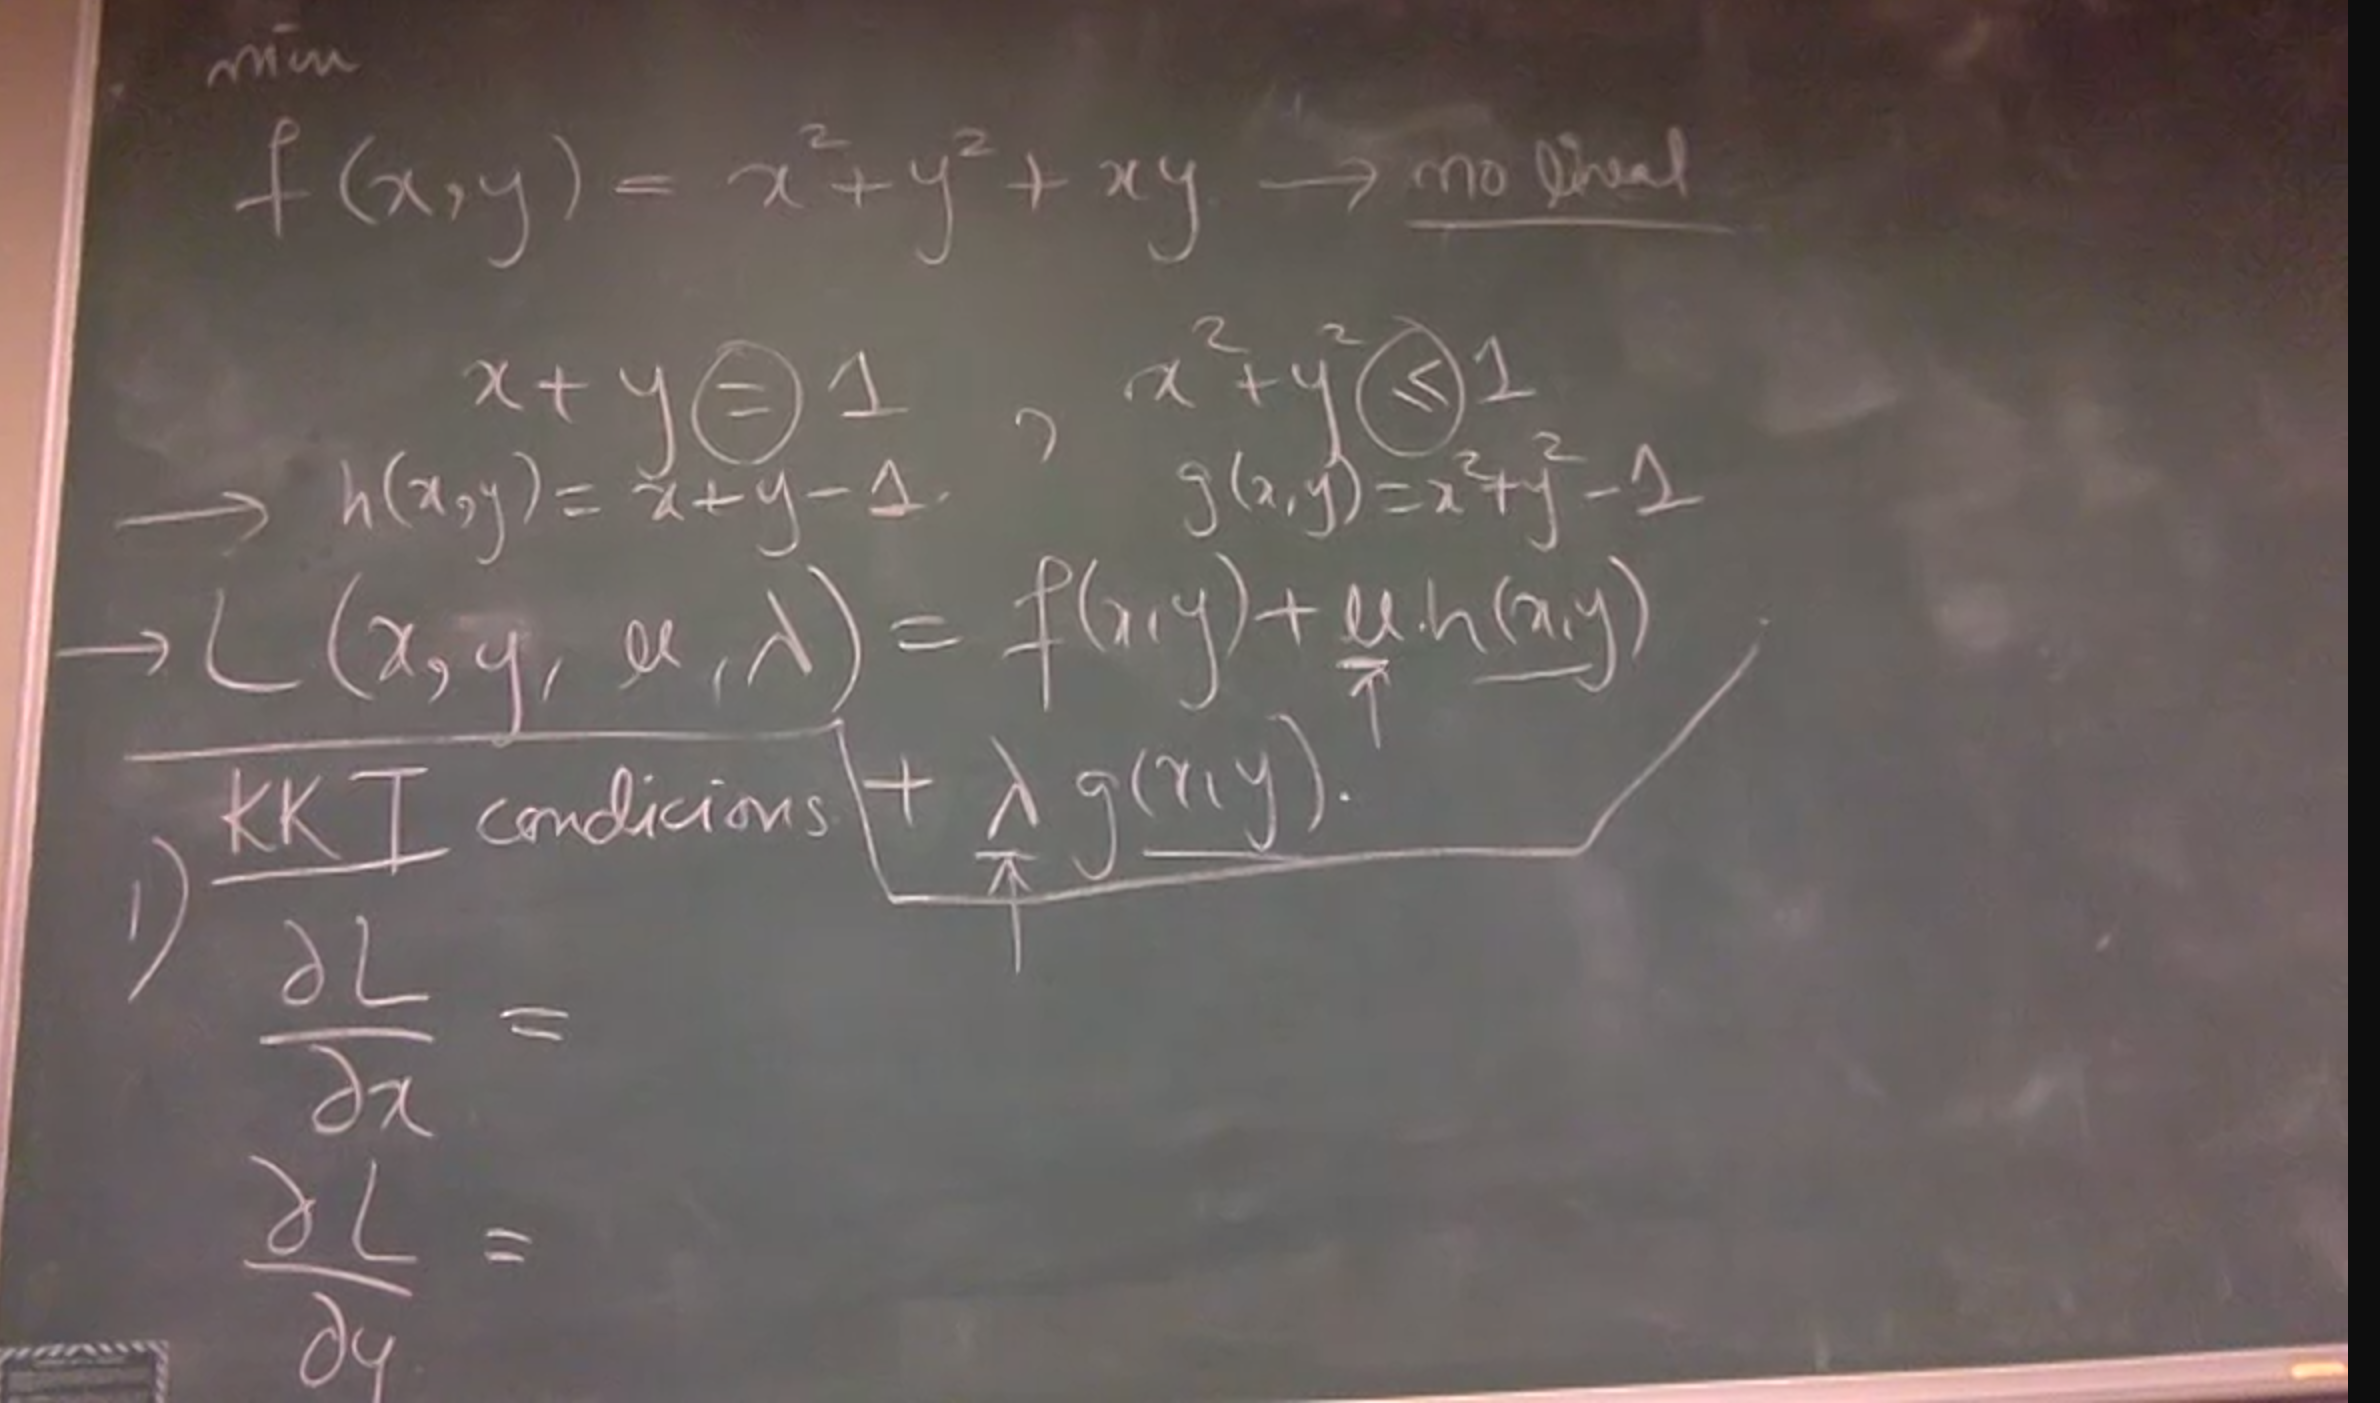 min
f(x,y) = x² + y² + xy → no lineal
x + y = 1 , x² + y² ≤ 1
→ h(x,y) = x + y - 1. g(x,y) = x² + y² - 1
→ L(x, y, μ, λ) = f(x,y) + μ·h(x,y)
+ λ g(x,y).
KKT condicions
1)
∂L/∂x =
∂L/∂y =